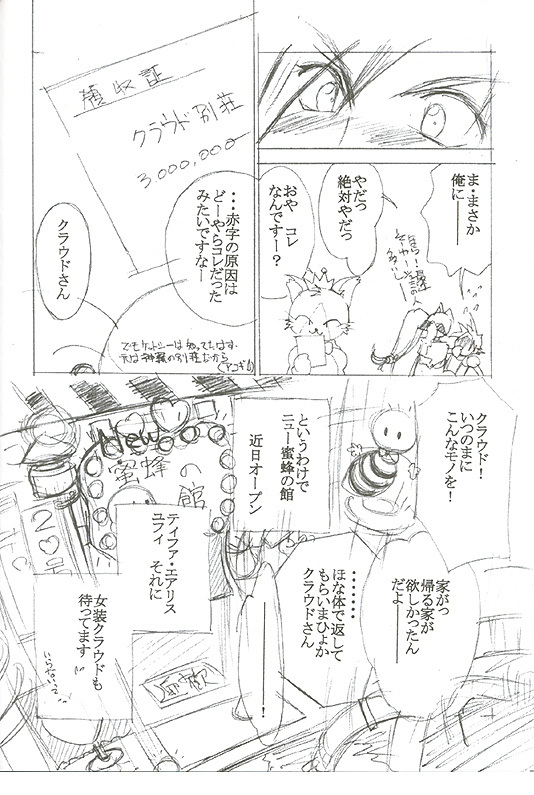 ま・まさか
俺に―――
やだっ
絶対やだっ
おや コレ
なんですー?
領収証
クラウド別荘
3,000,000-
・・・赤字の原因は
どーやらコレだった
みたいですなー
クラウドさん
でもケットシーは知ってたはず
元は神羅の別荘だから
クラウド!
いつのまに
こんなモノを!
家がっ
帰る家が
欲しかったん
だよ―――
ほな体で返して
もらいまひょか
クラウドさん
―――!
というわけで
ニュー蜜蜂の館
近日オープン
New
蜜蜂の
館
ティファ・エアリス
ユフィ
それに
女装クラウドも
待ってます